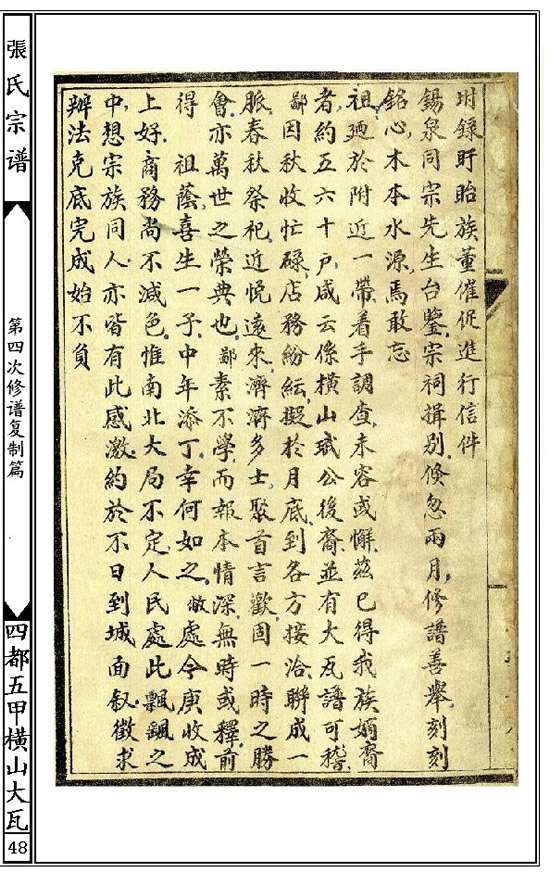 張氏宗谱
第四次修谱复制篇
四都五甲横山大瓦
48
坿錄盱眙族董催促進行信件
錫泉同宗先生台鑒宗祠揖别倏忽兩月修譜善舉刻刻
銘心木本水源焉敢忘
祖廼於附近一帶着手調查未容或懈茲已得我族嫡裔
者約五六十户咸云係橫山珷公後裔並有大瓦譜可稽
鄙因秋收忙碌店務紛紜擬於月底到各方接洽聯成一
脈春秋祭祀近悦遠來濟濟多士聚首言歡固一時之勝
會亦萬世之榮典也鄙素不學而報本情深無時或釋前
得 祖蔭喜生一子中年添丁幸何如之敝處今庚收成
上好商務尚不減色惟南北大局不定人民處此飄飄之
中想宗族同人亦皆有此感激約於不日到城面叙徵求
辦法克底完成始不負